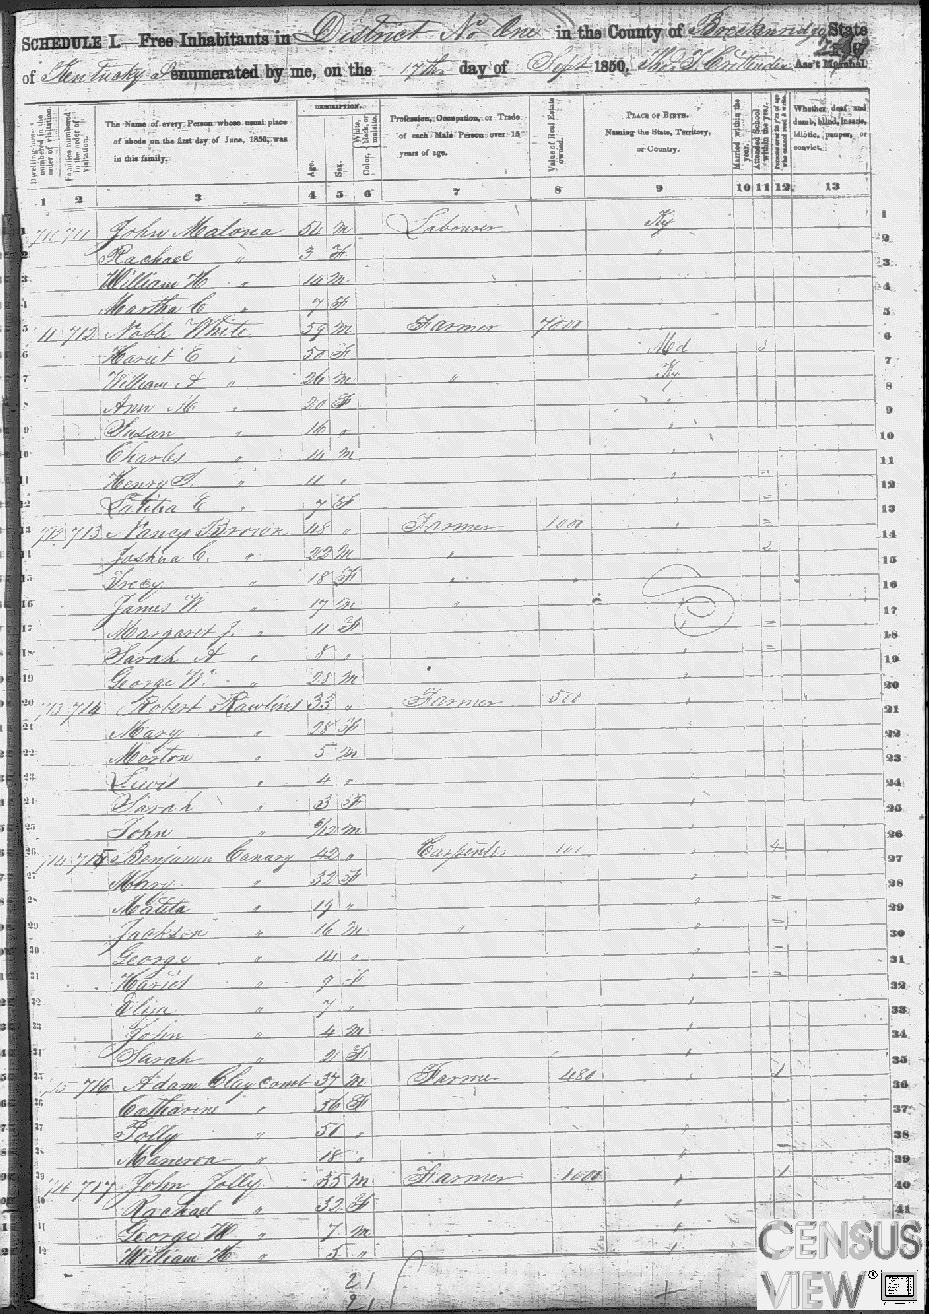 SCHEDULE I. Free Inhabitants in District No One in the County of Breckenridge State
of Kentucky enumerated by me, on the 17th day of Sept 1850, Thos S Crittenden Ass't Marshal
DESCRIPTION.
The Name of every Person whose usual place of abode on the first day of June, 1850, was in this family.
Age.
Sex.
Profession, Occupation, or Trade of each Male Person over 15 years of age.
Value of Real Estate owned.
PLACE OF BIRTH. Naming the State, Territory, or Country.
Married within the year.
Attended School within the year.
Whether deaf and dumb, blind, insane, idiotic, pauper, or convict.
1 2 3 4 5 6 7 8 9 10 11 12 13
711 John Malonea M Labourer Ky
Rachael " 3 F
William H " M
Martha C " 7 F
11 712 Noble White 59 M Farmer 7000
Hariet E " 50 F Md
William A " 26 M " Ky
Ann M " 20 F
Susan " 16 "
Charles " 14 M
Henry S " 11 "
Latitia E " 7 F
712 713 Nancy Brown 48 " Farmer 1000
Joshua C. " 22 M "
Tracy " 18 F "
James W. " 17 M "
Margaret J. " 11 F
Sarah A " 8 "
George W. " 28 M
713 714 Robert Rawlins 33 " Farmer 500
Mary " 28 F
Morton " 5 M
Lewis " 4 "
Sarah " 3 F
John " 6/12 M
714 715 Benjamin Canary 42 " Carpenter 100
Mary " 32 F
Matilta " 19 "
Jackson " 16 M "
George " 14 "
Hariet " 9 F
Eliza " 7 "
John " 4 M
Sarah " 2 F
715 716 Adam Claycomb 37 M Farmer 480
Catharine " 36 F
Polly " 50 "
Manerva " 18 "
716 717 John Jolly 35 M Farmer 1000
Rachael " 32 F
George W " 7 M
William H " 5 "
21
21
CENSUS
VIEW